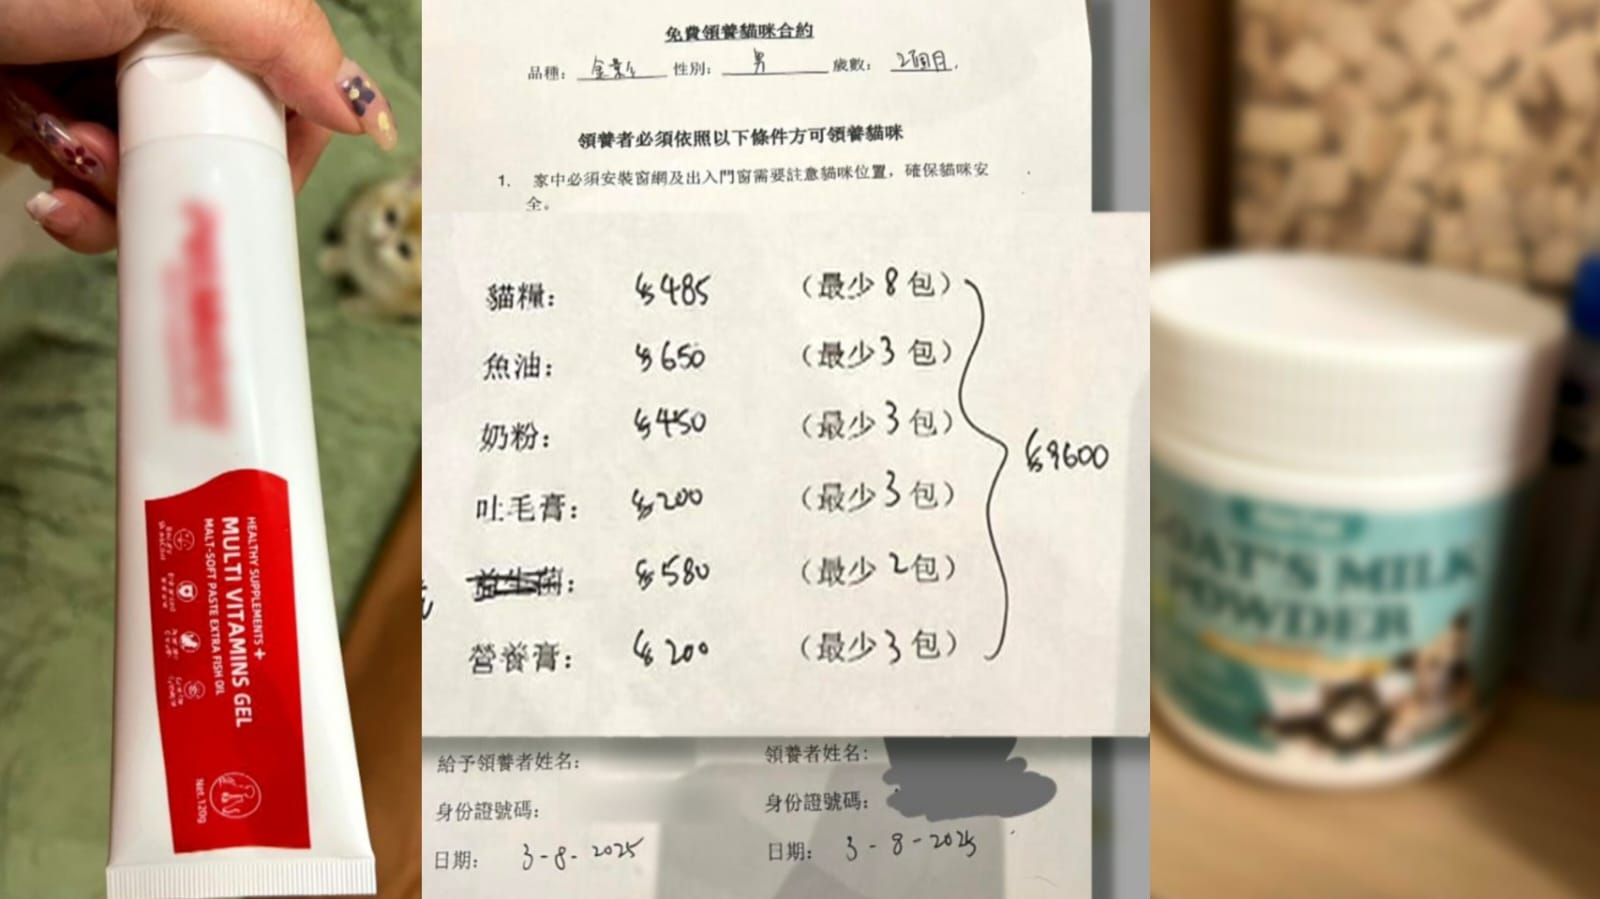 HEALTHY SUPPLEMENTS +
MULTI VITAMINS GEL
MALT-SOFT PASTE EXTRA FISH OIL
Net.120g
免費領養貓咪合約
品種： 金漸 性別： 男 歲數： 2個月.
領養者必須依照以下條件方可領養貓咪
1. 家中必須安裝窗網及出入門窗需要註意貓咪位置，確保貓咪安
全。
貓糧： $485 （最少 8 包）
魚油： $650 （最少 3 包）
奶粉： $450 （最少 3 包）
吐毛膏： $200 （最少 3 包）
益生菌： $580 （最少 2 包）
營養膏： $200 （最少 3 包）
$9600
給予領養者姓名：
身份證號碼：
日期： 3-8-2025
領養者姓名：
身份證號碼：
日期： 3-8-2025
GOAT'S MILK
POWDER